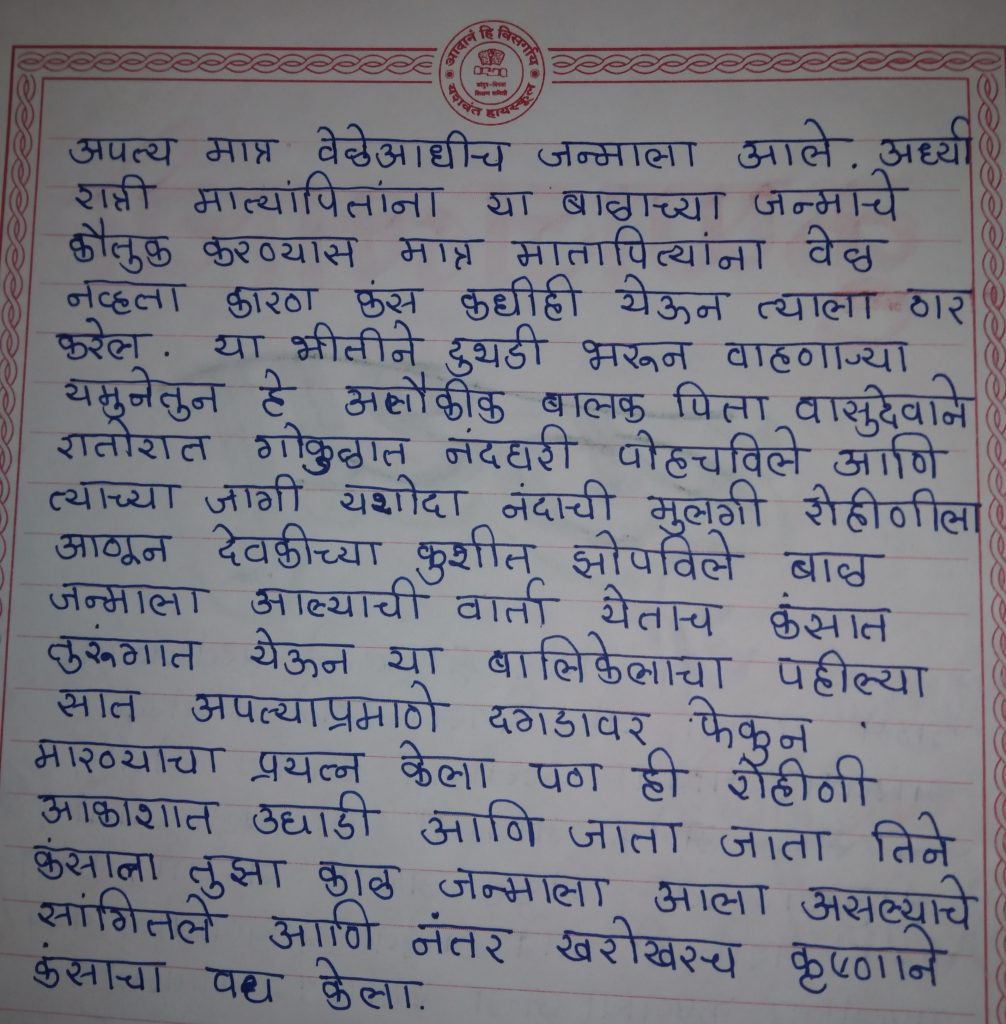 आदानं हि विसर्गाय
यशवंत हायस्कूल
अपत्य मात्र वेळेआधीच जन्माला आले. अर्ध्या
रात्री मात्यांपितांना या बाळाच्या जन्माचे
कौतुक करण्यास मात्र मातापित्यांना वेळ
नव्हता कारण कंस कधीही येऊन त्याला ठार
करेल. या भीतीने दुथडी भरून वाहणाऱ्या
यमुनेतुन हे अलौकीक बालक पिता वासुदेवाने
रातोरात गोकुळात नंदघरी पोहचविले आणि
त्याच्या जागी यशोदा नंदाची मुलगी रोहीणीला
आणून देवकीच्या कुशीत झोपविले बाळ
जन्माला आल्याची वार्ता येताच कंसात
तुरूंगात येऊन या बालिकेलाचा पहील्या
सात अपत्याप्रमाणे दगडावर फेकुन
मारण्याचा प्रयत्न केला पण ही रोहीणी
आकाशात उघाडी आणि जाता जाता तिने
कंसाला तुझा काळ जन्माला आला असल्याचे
सांगितले आणि नंतर खरोखरच कृष्णाने
कंसाचा वध केला.